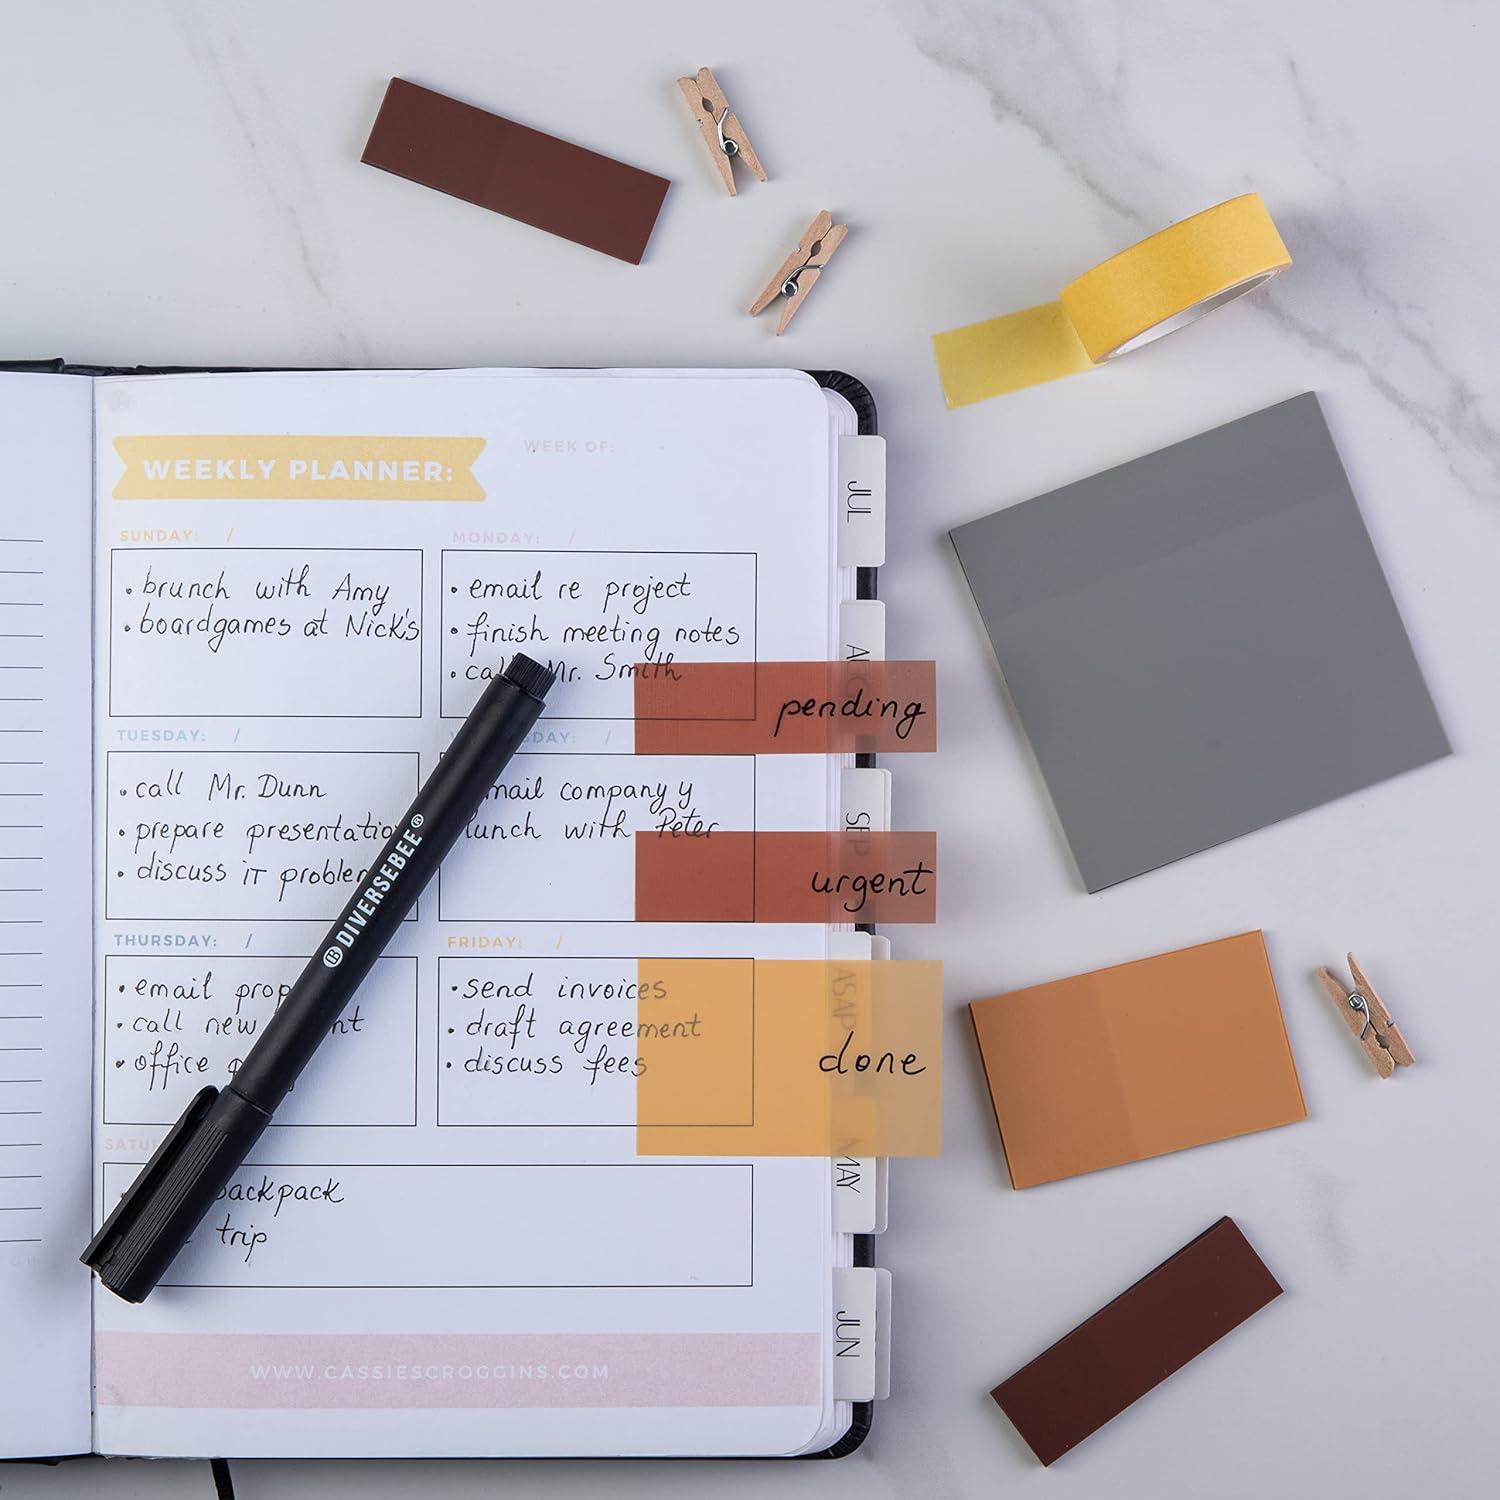 WEEKLY PLANNER:
WEEK OF:
SUNDAY: /
• brunch with Amy
• boardgames at Nick's
MONDAY: /
• email re project
• finish meeting notes
• call Mr. Smith
pending
TUESDAY: /
• call Mr. Dunn
• prepare presentatio
• discuss IT
DAY: /
mail company y
lunch with Peter
urgent
THURSDAY: /
• email
• call new
• office
FRIDAY: /
• send invoices
• draft agreement
• discuss fees
done
SATU
backpack
trip
WWW.CASSIESCROGGINS.COM
JUL
AUG
SEP
ASAP
MAY
JUN
DB DIVERSEBEE®